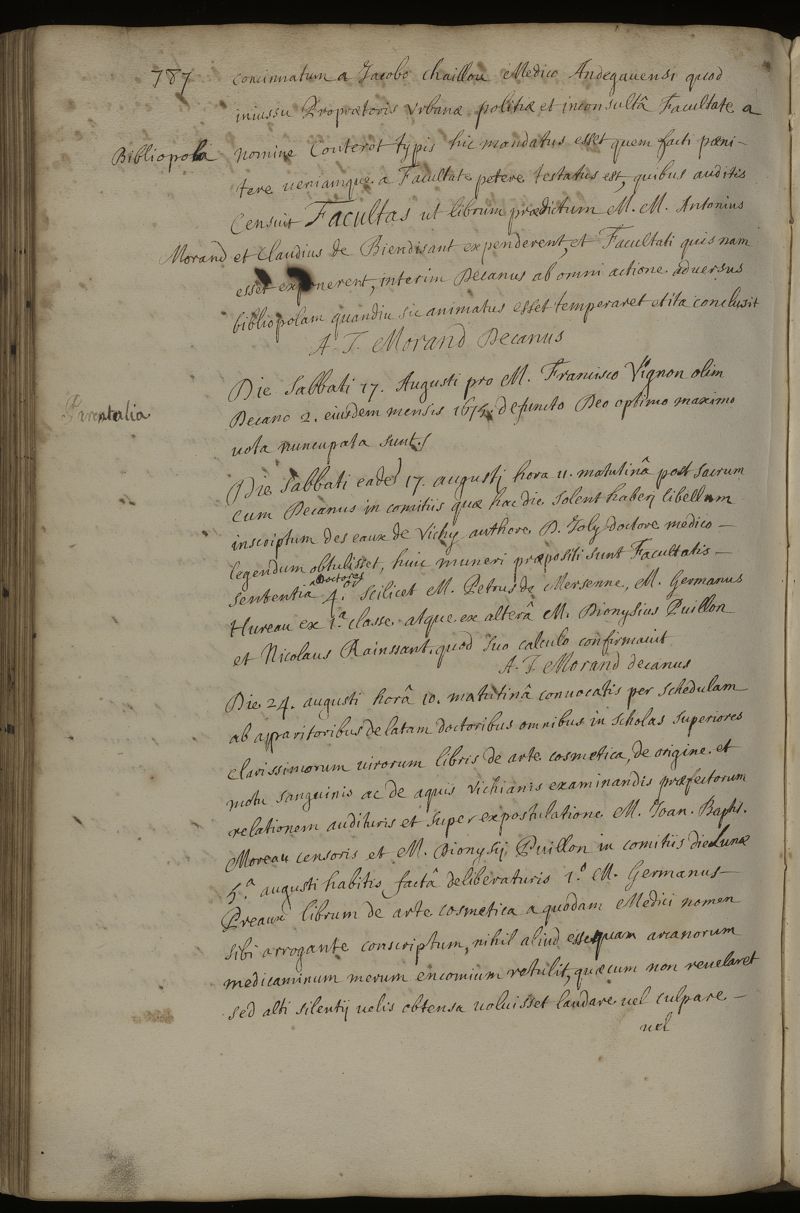 787 concinnatum a Jacobo Chaillou Medico Andegauensi quod
iniussu Propraetoris Vrbanae politiae et inconsultâ Facultate a
Bibliopola nomine Couterot typis hic mandatus esset quem facti paeni-
tere ueniamque a Facultate petere testatus est, quibus auditis
Censuit Facultas ut librum praedictum M. M. Antonius
Morand et Claudius de Biendisant expenderent, et Facultati quisnam
esset exponerent, interim Decanus ab omni actione aduersus
bibliopolam quandiu sic animatus esset temperaret et ita conclusit
A. J. Morand Decanus
Die Sabbati 17. Augusti pro M. Francisco Vignon olim
Parentalia Decano 2. eiusdem mensis 1675. defuncto Deo optimo maximo
uota nuncupata sunt.
Die Sabbati eadē 17. augustj hora 11. matutinâ post sacrum
cum Decanus in comitiis quae hac die solent haberj libellum
inscriptum des eaux de Vichy authore D. Joly doctore medico –
legendum obtulisset, huic muneri praepositi sunt Facultatis –
Doctores
sententiâ 4.or scilicet M. Petrus de Mersenne, M. Germanus
Hureau ex 1.a classe atque ex alterâ M. Dionysius Puillon
et Nicolaus Rainssant. quod suo calculo confirmauit
A. J. Morand decanus
Die 24. augusti horâ 10. matutinâ conuocatis per schedulam
ab apparitoribus delatam doctoribus omnibus in scholas superiores
clarissimorum uirorum libris de arte cosmetica, de origine et
motu sanguinis ac de aquis Vichianis examinandis praefectorum
relationem audituris et super expostulatione M. Joan. Bapt.
Moreau censoris et M. Dionysij Puillon in comitiis die Lunae
5.a augusti habitis factâ deliberaturis 1.o M. Germanus –
Preaux librum de arte cosmetica a quodam Medici nomen
sibi arrogante conscriptum, nihil aliud esse quam arcanorum
medicaminum merum encomium retulit, quae cum non reuelaret
sed alti silentij uelis obtensa uoluisset laudare uel culpare –
uel